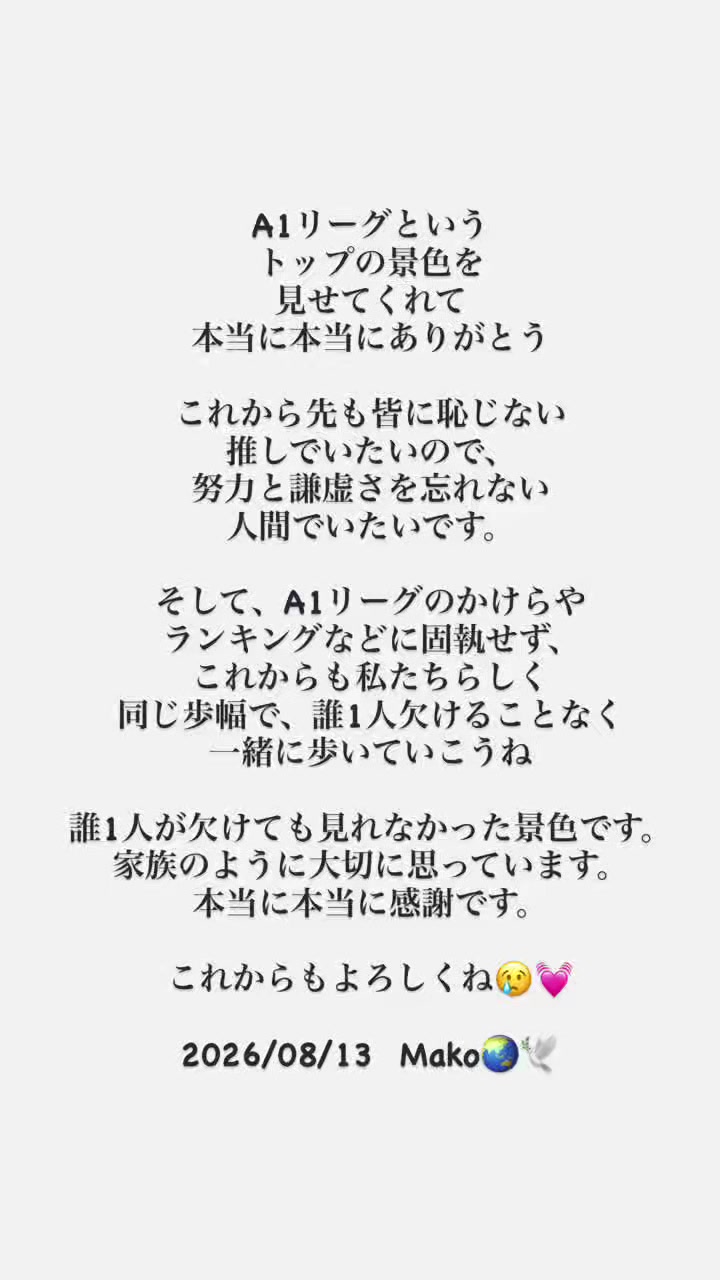 A1リーグという
トップの景色を
見せてくれて
本当に本当にありがとう
これから先も皆に恥じない
推しでいたいので、
努力と謙虚さを忘れない
人間でいたいです。
そして、A1リーグのかけらや
ランキングなどに固執せず、
これからも私たちらしく
同じ歩幅で、誰1人欠けることなく
一緒に歩いていこうね
誰1人が欠けても見れなかった景色です。
家族のように大切に思っています。
本当に本当に感謝です。
これからもよろしくね😢💓
2026/08/13 Mako🌏🕊️